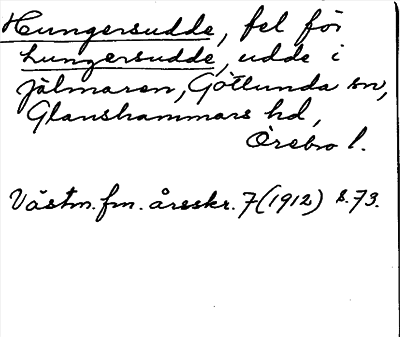 Hungersudde, fel för
Lungersudde, udde i
Jälmaren, Götlunda sn,
Glanshammars hd,
Örebro l.
Västm. fm. årsskr. 7 (1912) s. 73.